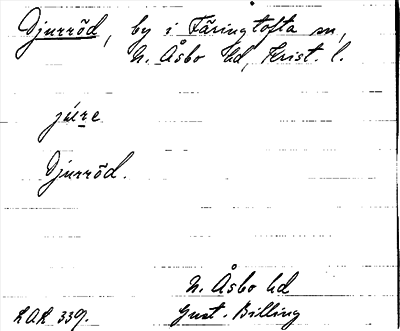 Djurröd, by i Färingtofta sn,
N. Åsbo hd, Krist. l.
júre
Djurröd.
N. Åsbo hd
LAR 339. Gust. Billing